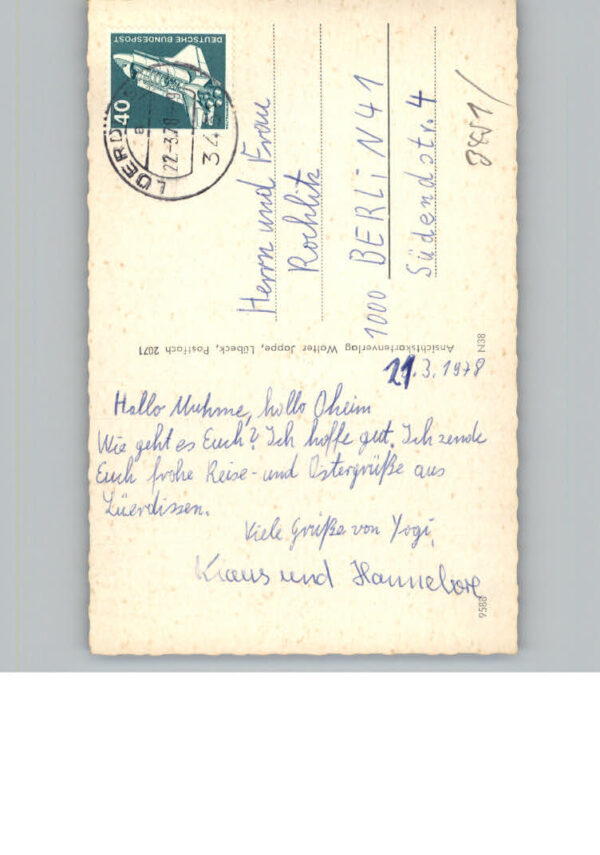 21.3.1978
Hallo Muhme, hallo Oheim
Wie geht es Euch? Ich hoffe gut. Ich sende
Euch frohe Reise- und Ostergrüße aus
Lüerdissen.
Viele Grüße von Yogi,
Klaus und Hannelore
Herrn und Frau
Rochlitz
1000 BERLIN 41
Südendstr. 4
DEUTSCHE BUNDESPOST
40
22.-3.78
Ansichtskartenverlag Walter Jappe, Lübeck, Postfach 2071
N38
9588